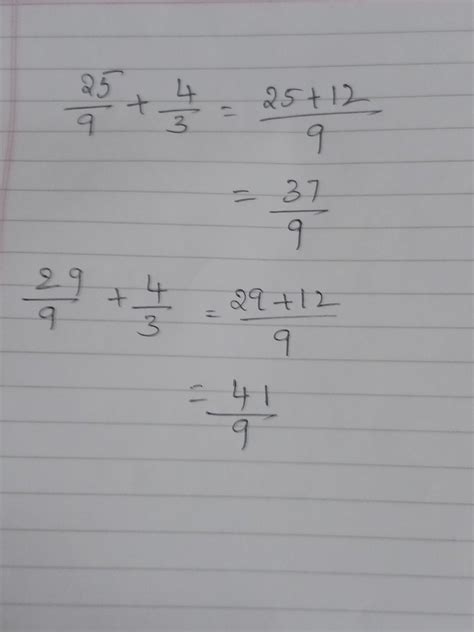 25/9 + 4/3 = 25+12/9
= 37/9
29/9 + 4/3 = 29+12/9
= 41/9